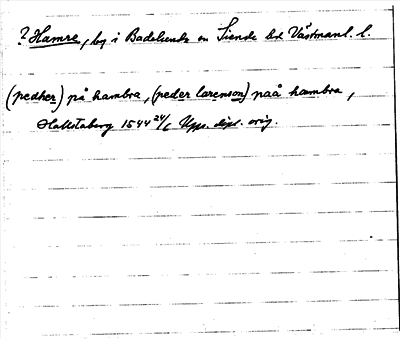 ? Hamre, by i Badelunda sn Siende hd Västmanl. l.
(pedher) på hambra, (peder larenson) paå hambra,
Hallstaberg 1544 24/6 Upps. dipl. orig.